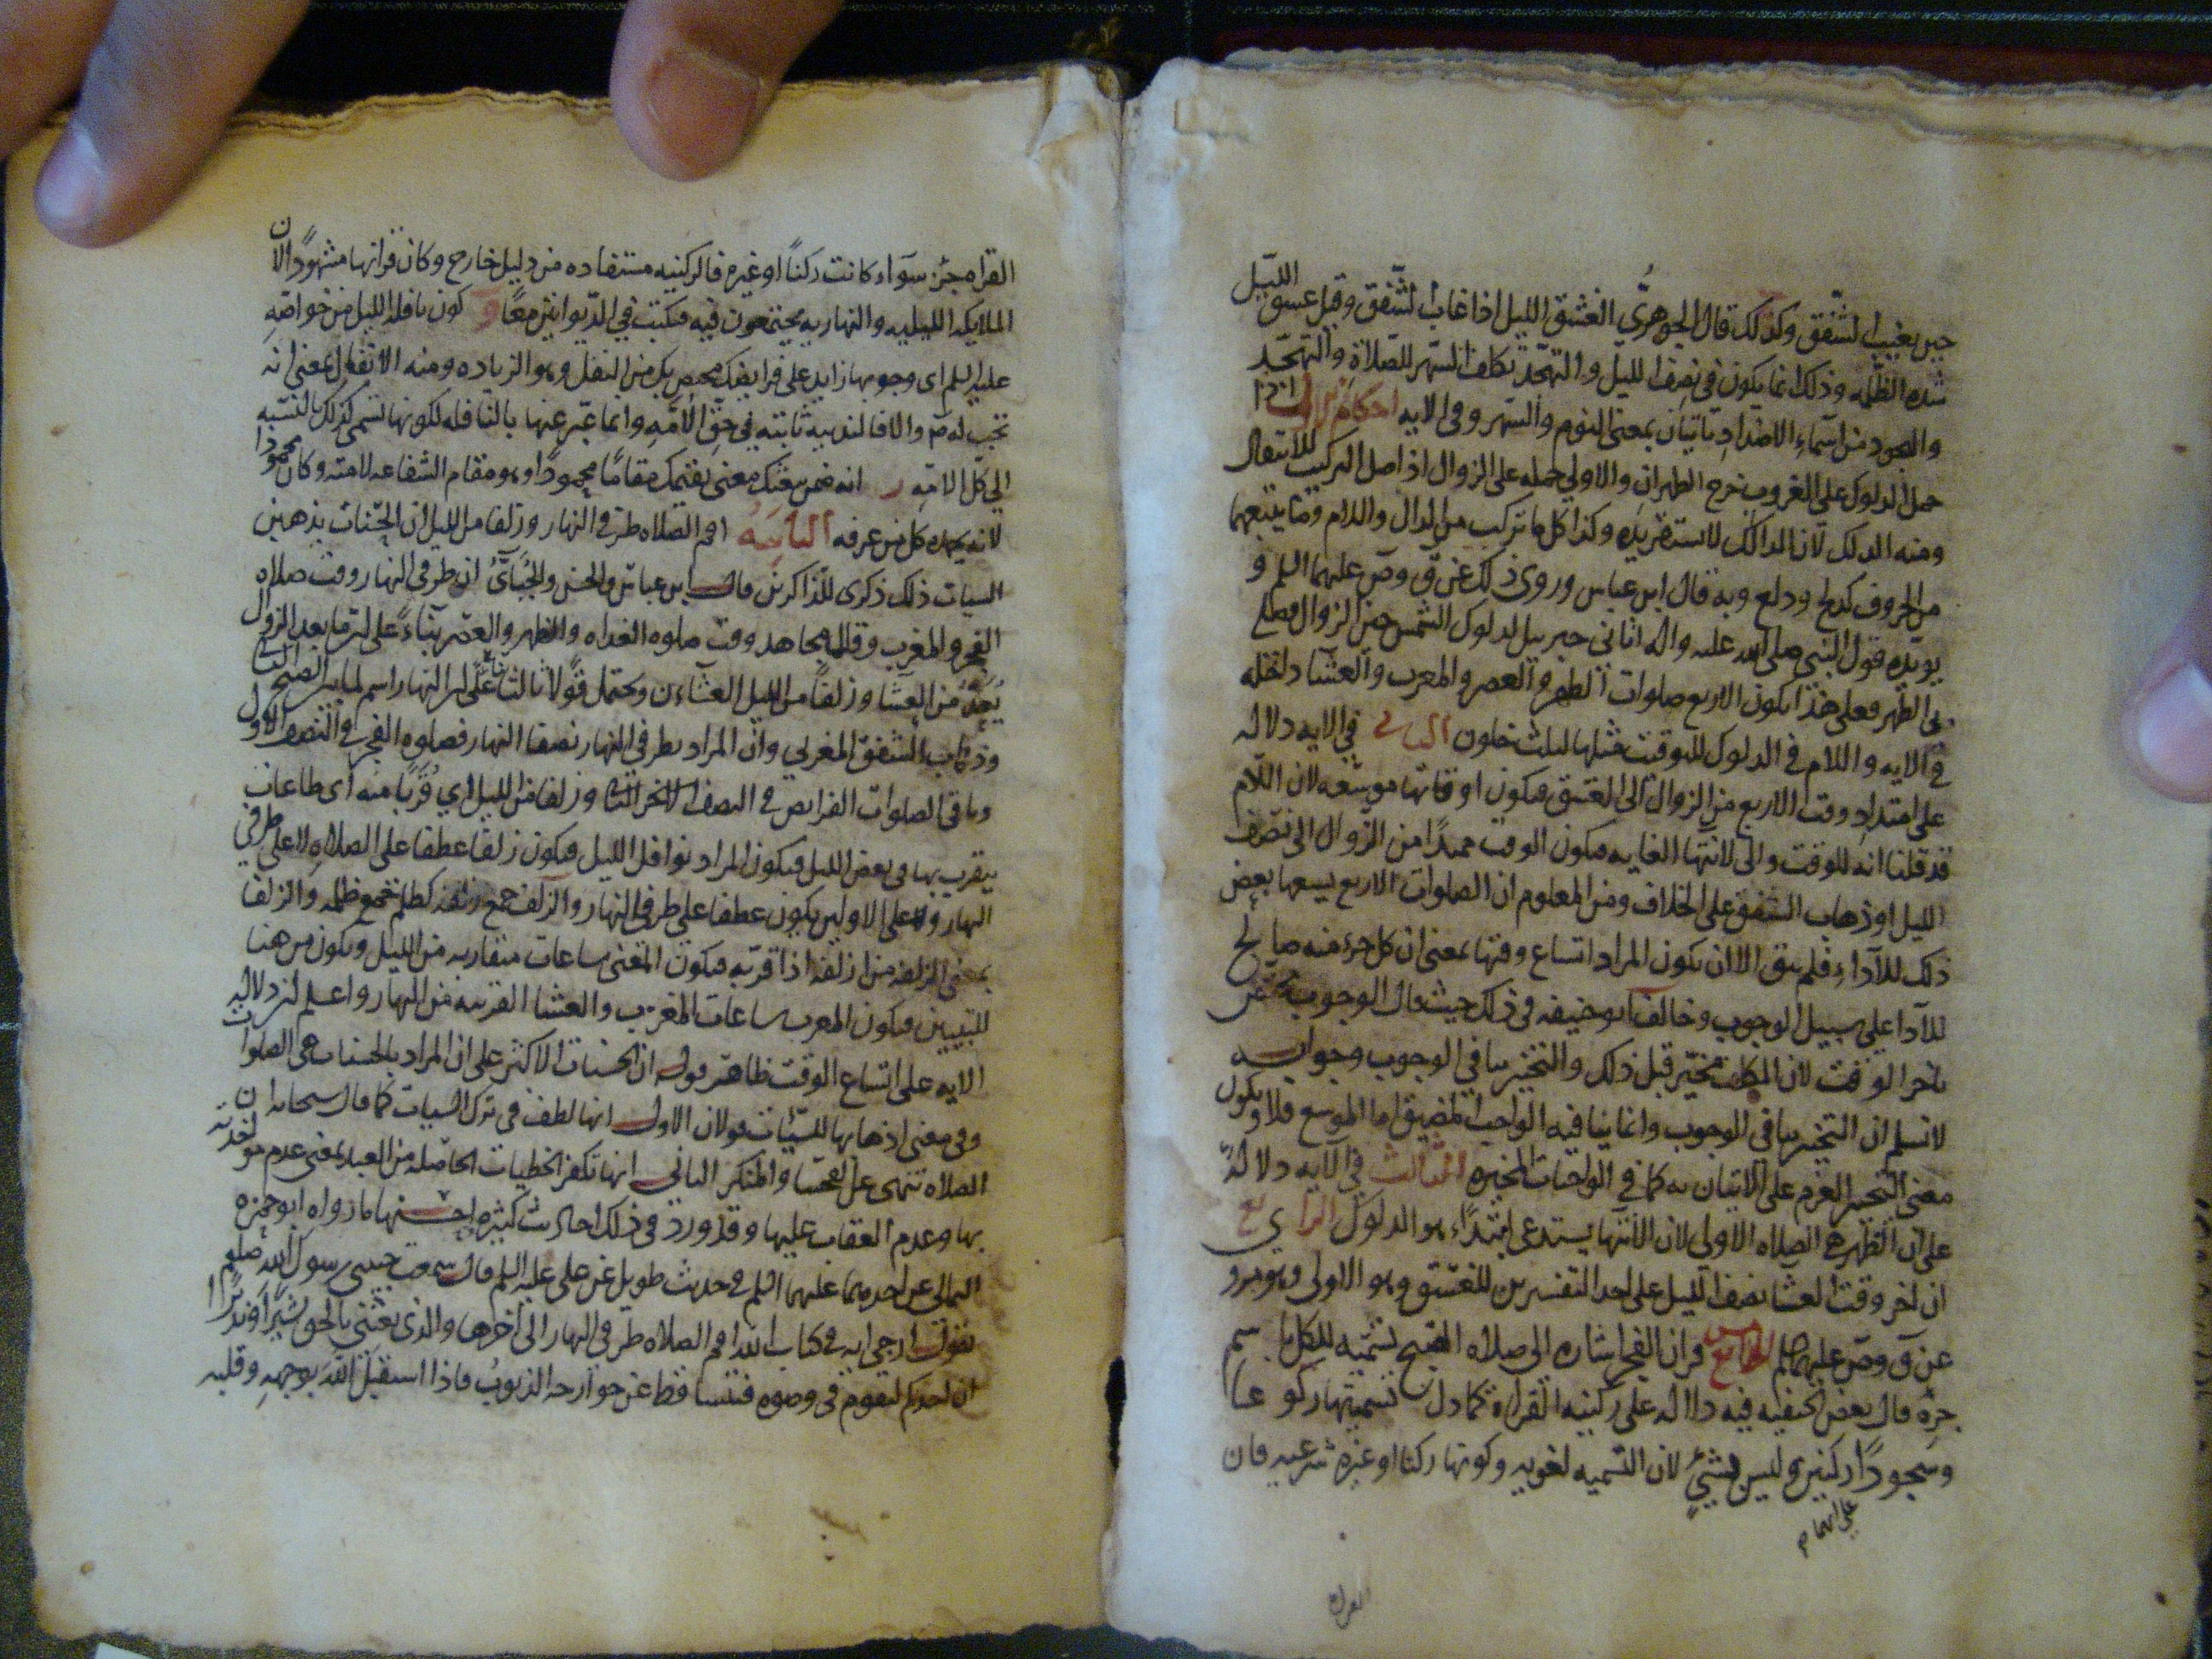 حين يغيب الشفق وكذلك قال الجوهري الغسق الليل اذا غاب الشفق وقيل غسق الليل
شده الظلمه وذلك انما يكون في نصف الليل والتهجد تكلف السهر للصلاة والتهجد
والهجود من اسماء الاضداد تاتيان بمعنى النوم والسهر وفي الايه احكام
حمل الدلوك على الغروب خرج الظهران والاولى حمله على الزوال اذ اصل التركيب للانتقال
ومنه الدلك لان الدالك لا يستقر يده وكذا كل ما تركب من الدال واللام وما يتبعهما
من الحروف كدلج ودلع وبه قال ابن عباس وروى ذلك عن ق وص عليهما السلم و
يويده قول النبي صلى الله عليه واله اتاني جبرييل لدلوك الشمس حين الزوال فصلى
بى الظهر فعلى هذا يكون الاربع صلوات الظهر والعصر والمغرب والعشا داخله
في الايه واللام في الدلوك للتوقيت مثلها لثلث خلون الثاني في الايه دلاله
على امتداد وقت الاربع من الزوال الى الغسق فيكون اوقاتها موسعه لان اللام
قد قلنا انه للوقت والى لانتها الغايه فيكون الوقت ممتدا من الزوال الى نصف
الليل او ذهاب الشفق على الخلاف ومن المعلوم ان الصلوات الاربع يسعها بعض
ذلك للاداء فلم يبق الا ان يكون المراد اتساع وقتها بمعنى ان كل جزء منه صالح
للادا على سبيل الوجوب وخالف ابو حنيفه في ذلك حيث قال الوجوب مختص
باخر الوقت لان المكلف مخير قبل ذلك والتخيير ينافي الوجوب وجوابه
لا نسلم ان التخيير ينافي الوجوب وانما ينافيه الواجب المضيق اما الموسع فلا ويكون
معنى التخيير العزم على الاتيان به كما في الواجبات المخيره الثالث في الايه دلاله
على ان الظهر هي الصلاه الاولى لان الانتها يستدعي ابتداء وهو الدلوك الرابع
ان اخر وقت العشا نصف الليل على احد التفسيرين للغسق وهو الاولى وهو مروي
عن ق وص عليهما السلم الخامس قران الفجر اشاره الى صلاه الصبح تسميه للكل باسم
جزه قال بعض الحنفيه فيه دلاله على ركنيه القراءة كما دل تسميتها ركوعا
وسجودا ركنين وليس بشيء لان التسميه لغويه وكونها ركنا او غيره شرعيه فان
القراه
القراه جزء سواء كانت ركنا او غيره فالركنيه مستفاده من دليل خارج وكان قرانها مشهودا لان
الملايكه الليليه والنهاريه يجتمعون فيه فيكتب في الديوانين معا و كون نافله الليل من خواصه
عليه السلم اى وجوبها زايد على فرايضك مختص بك من النفل وهو الزياده ومنه الانفال بمعنى انه
تجب له ص والا فالندبيه ثابته في حق الامه وانما عبر عنها بالنافله لكونها تسمى كذلك بالنسبه
الى كل الامه ر انه ضمن يبعثك معنى يقيمك مقاما محمودا وهو مقام الشفاعه لامته وكان محمودا
لانه يحمده كل من عرفه الثامنه اقم الصلاه طرفي النهار وزلفا من الليل ان الحسنات يذهبن
السيات ذلك ذكرى للذاكرين قال ابن عباس والحسن والجبائي ان طرفي النهار وقت صلاه
الفجر والمغرب وقال مجاهد وقت صلوه الغداه والظهر والعصر بناء على ان ما بعد الزوال
يعد من العشا وزلفا من الليل العشاءين ويحتمل قولا ثالثا بناء على ان النهار اسم لما بين الصبح الثاني
وذهاب الشفق المغربي وان المراد بطرفي النهار نصفا النهار فصلوه الفجر في النصف الاول
وباقي الصلوات الفرايض في النصف الاخر الثاني وزلفا من الليل اي قربا منه اى طاعات
يتقرب بها في بعض الليل فيكون المراد نوافل الليل فيكون زلفا عطفا على الصلاه لا على طرفي
النهار وعلى الاولين يكون عطفا على طرفي النهار والزلف جمع زلفه كظلم جمع ظلمه والزلفا
بمعنى الزلفه من ازلفه اذا قربه فيكون المعنى ساعات متقاربه من الليل ويكون من هنا
للتبيين فيكون المغرب ساعات المغرب والعشا القريبه من النهار واعلم ان دلاله
الايه على اتساع الوقت ظاهر قوله ان الحسنات الاكثر على ان المراد بالحسنات هي الصلوات
وفي معنى اذهابها للسيئات قولان الاول انها لطف في ترك السيات كما قال سبحانه ان
الصلاه تنهى عن الفحشا والمنكر الثاني انها تكفر الخطيات الحاصله من العبد بمعنى عدم مواخذته
بها وعدم العقاب عليها وقد ورد في ذلك احاديث كثيره احسنها ما رواه ابو حمزه
الثمالي عن احدهما عليهما السلم في حديث طويل عن علي عليه السلم قال سمعت حبيبي رسول الله صلعم
يقول ارجى ايه في كتاب الله اقم الصلاه طرفي النهار الى اخرها والذي بعثني بالحق بشيرا ونذيرا
ان احدكم ليقوم في وضوه فتتساقط عن جوارحه الذنوب فاذا استقبل الله بوجهه وقلبه